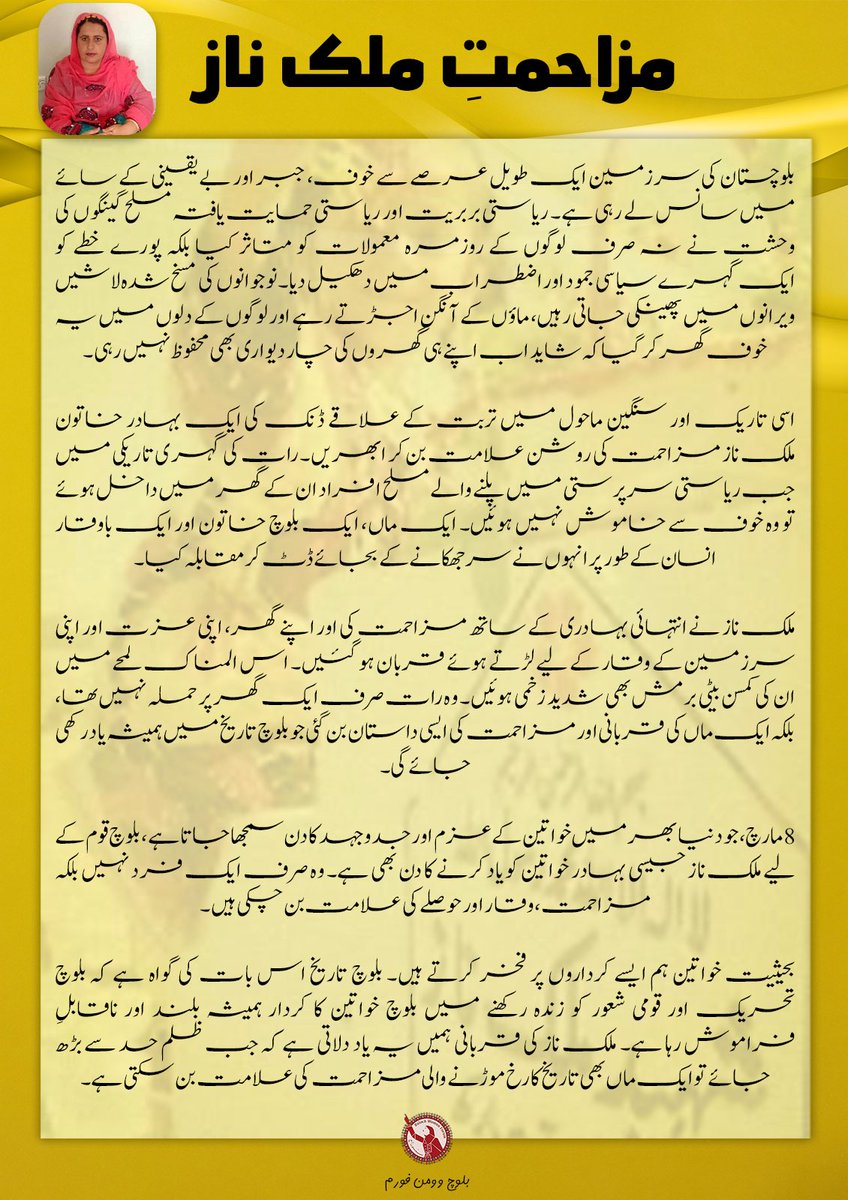 مزاحمتِ ملک ناز
بلوچستان کی سرزمین ایک طویل عرصے سے خوف، جبر اور بے یقینی کے سائے
میں سانس لے رہی ہے۔ ریاستی بربریت اور ریاستی حمایت یافتہ مسلح گینگوں کی
وحشت نے نہ صرف لوگوں کے روزمرہ معمولات کو متاثر کیا بلکہ پورے خطے کو
ایک گہرے سیاسی جمود اور اضطراب میں دھکیل دیا۔ نوجوانوں کی مسخ شدہ لاشیں
ویرانوں میں پھینکی جاتی رہیں، ماؤں کے آنگن اجڑتے رہے اور لوگوں کے دلوں میں یہ
خوف گھر کر گیا کہ شاید اب اپنے ہی گھروں کی چار دیواری بھی محفوظ نہیں رہی۔
اسی تاریک اور سنگین ماحول میں تربت کے علاقے ڈنک کی ایک بہادر خاتون
ملک ناز مزاحمت کی روشن علامت بن کر ابھریں۔ رات کی گہری تاریکی میں
جب ریاستی سرپرستی میں پلنے والے مسلح افراد ان کے گھر میں داخل ہوئے
تو وہ خوف سے خاموش نہیں ہوئیں۔ ایک ماں، ایک بلوچ خاتون اور ایک باوقار
انسان کے طور پر انہوں نے سر جھکانے کے بجائے ڈٹ کر مقابلہ کیا۔
ملک ناز نے انتہائی بہادری کے ساتھ مزاحمت کی اور اپنے گھر، اپنی عزت اور اپنی
سرزمین کے وقار کے لیے لڑتے ہوئے قربان ہو گئیں۔ اس المناک لمحے میں
ان کی کمسن بیٹی برمش بھی شدید زخمی ہوئیں۔ وہ رات صرف ایک گھر پر حملہ نہیں تھا،
بلکہ ایک ماں کی قربانی اور مزاحمت کی ایسی داستان بن گئی جو بلوچ تاریخ میں ہمیشہ یاد رکھی
جائے گی۔
8 مارچ، جو دنیا بھر میں خواتین کے عزم اور جدوجہد کا دن سمجھا جاتا ہے، بلوچ قوم کے
لیے ملک ناز جیسی بہادر خواتین کو یاد کرنے کا دن بھی ہے۔ وہ صرف ایک فرد نہیں بلکہ
مزاحمت، وقار اور حوصلے کی علامت بن چکی ہیں۔
بحیثیت خواتین ہم ایسے کرداروں پر فخر کرتے ہیں۔ بلوچ تاریخ اس بات کی گواہ ہے کہ بلوچ
تحریک اور قومی شعور کو زندہ رکھنے میں بلوچ خواتین کا کردار ہمیشہ بلند اور ناقابلِ
فراموش رہا ہے۔ ملک ناز کی قربانی ہمیں یہ یاد دلاتی ہے کہ جب ظلم حد سے بڑھ
جائے تو ایک ماں بھی تاریخ کا رخ موڑنے والی مزاحمت کی علامت بن سکتی ہے۔
بلوچ وومن فورم